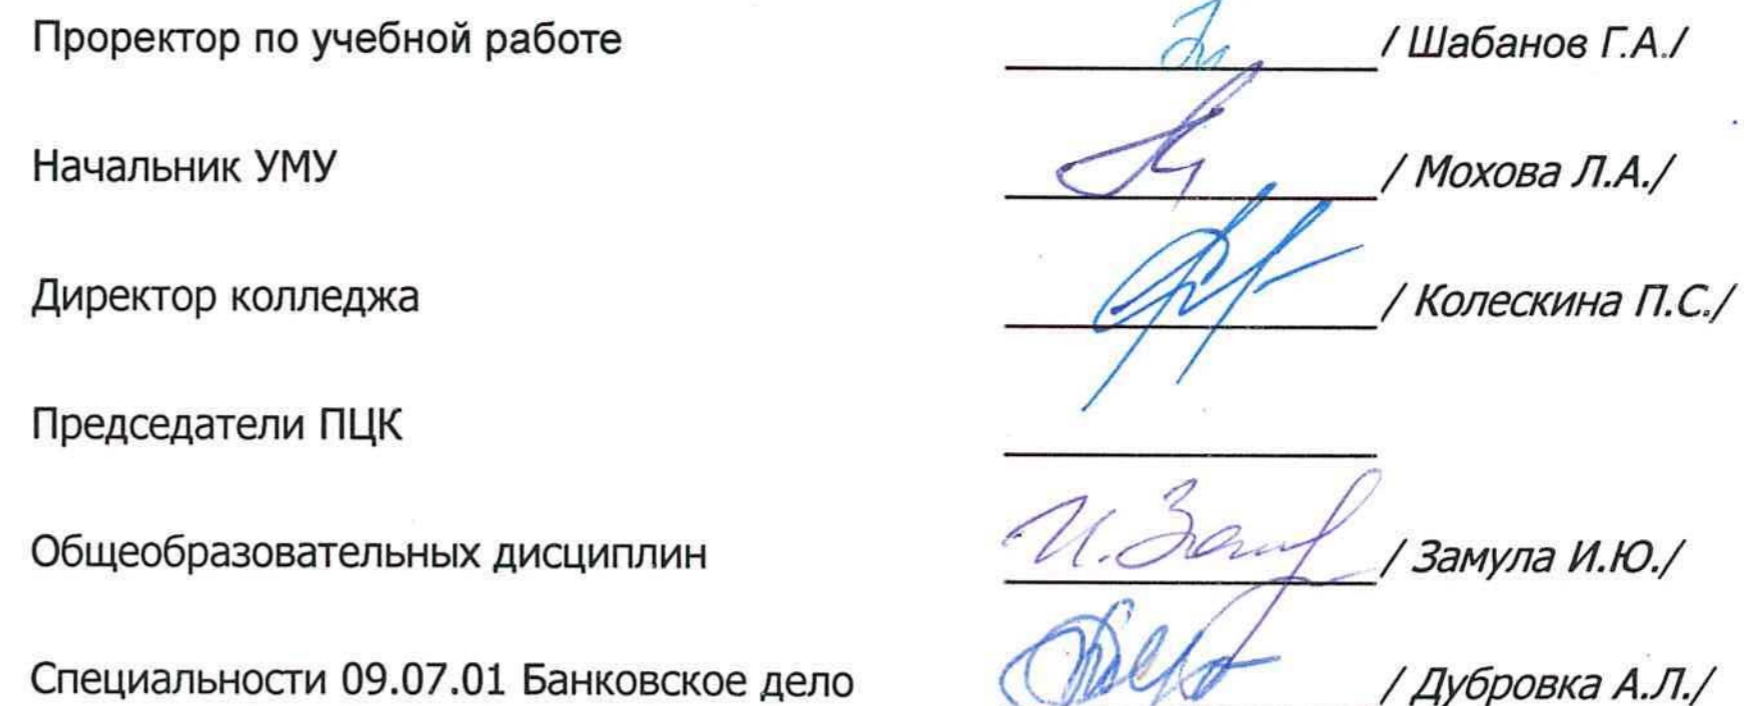 Проректор по учебной работе / Шабанов Г.А./
Начальник УМУ / Мохова Л.А./
Директор колледжа / Колескина П.С./
Председатели ПЦК
Общеобразовательных дисциплин / Замула И.Ю./
Специальности 09.07.01 Банковское дело / Дубровка А.Л./